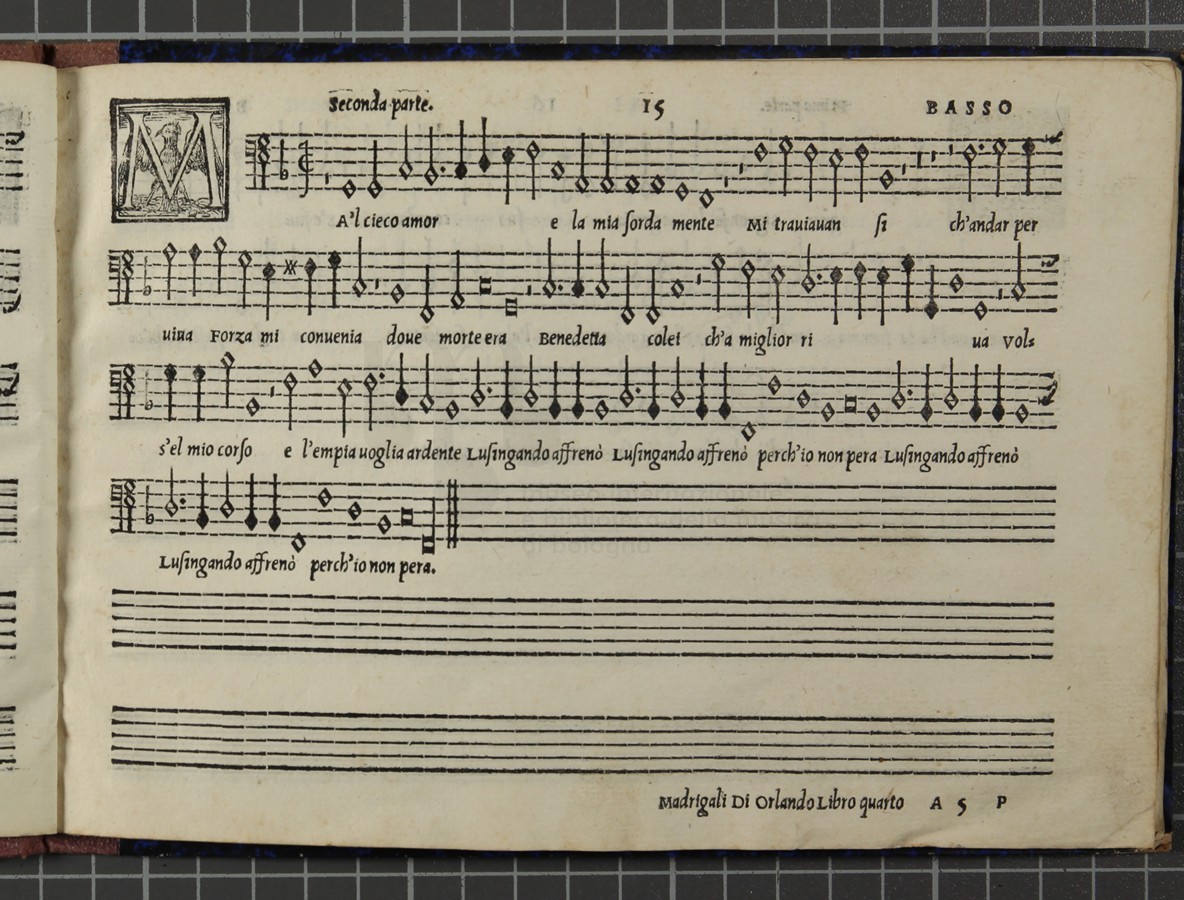 Seconda parte. 15 BASSO
MA'l cieco amor e la mia ſorda mente Mi trauiauan ſi ch'andar per
uiua Forza mi conuenia doue morte era Benedetta colei ch'a miglior ri ua Vols
s'el mio corſo e l'empia uoglia ardente Luſingando affrenò Luſingando affrenò perch'io non pera Luſingando affrenò
Luſingando affrenò perch'io non pera.
Madrigali Di Orlando Libro quarto A 5 P